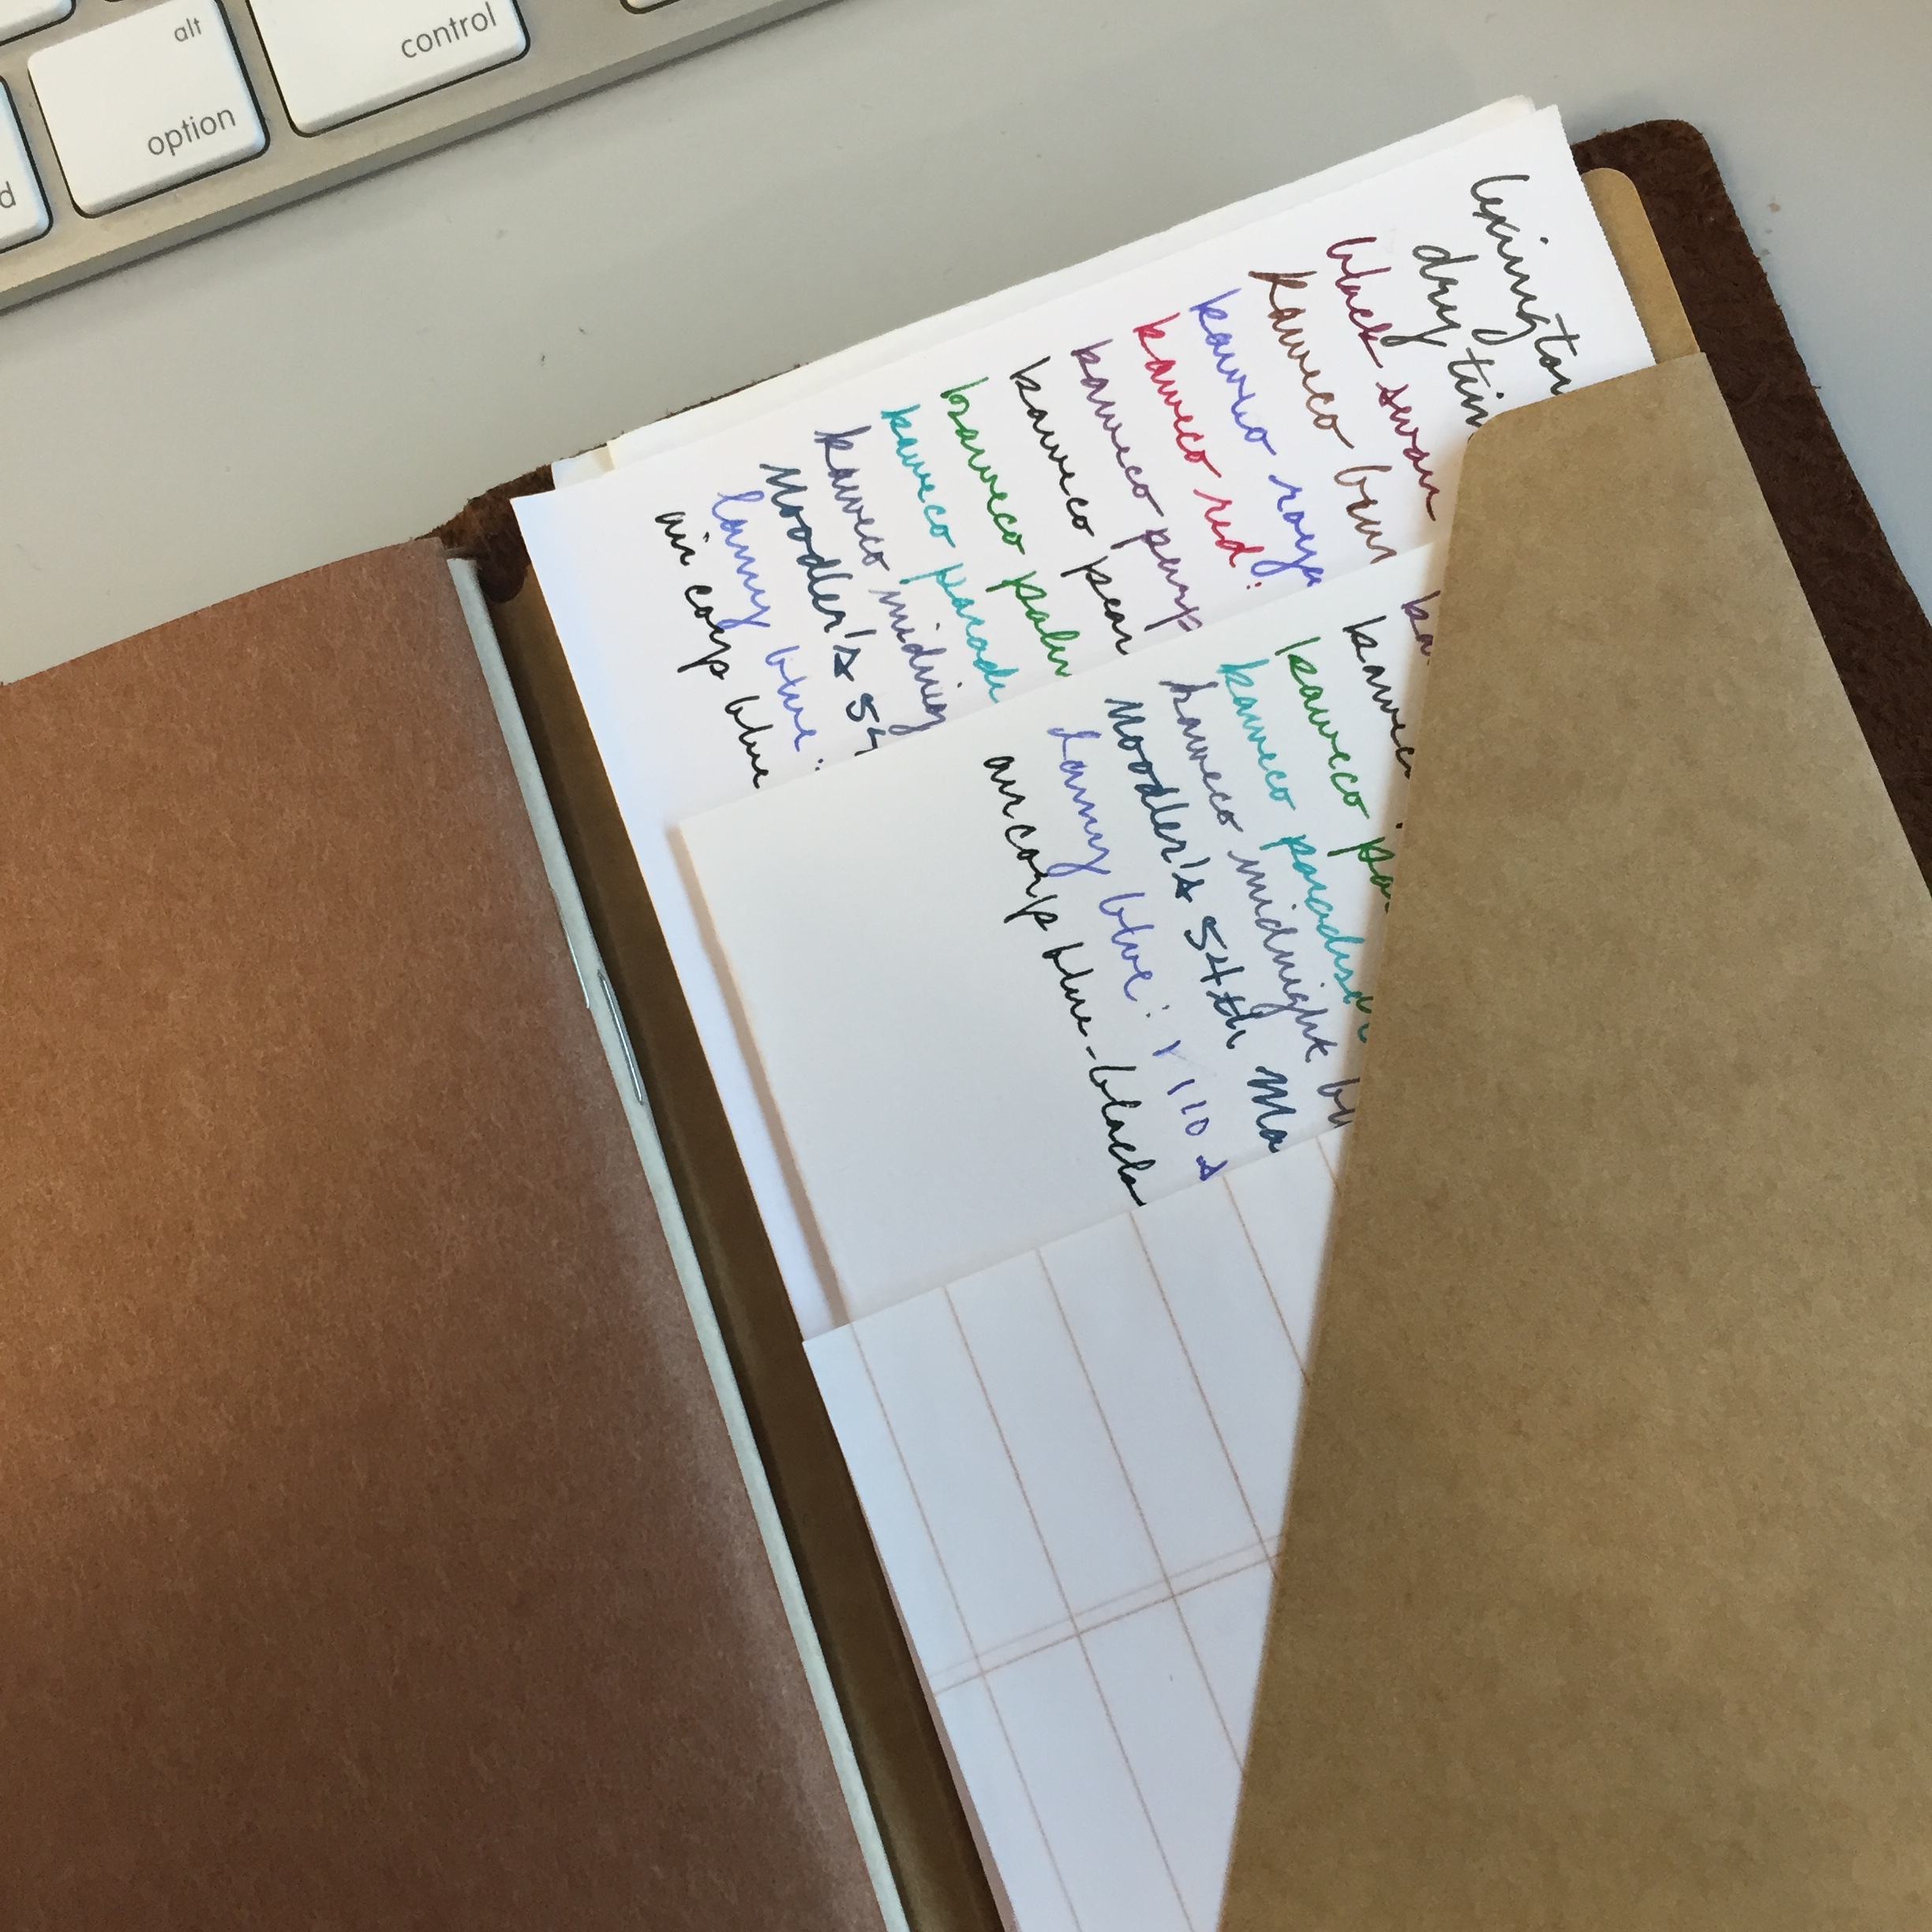 alt
option
control
d
Lexington
dry tim
black swan
kaweco brow
kaweco roya
kaweco red:
kaweco purp
kaweco pear
kaweco palm
kaweco paradi
kaweco midnig
Noodler's 54
lamy blue:
air corp blue
ka
kaweco
kaweco pa
kaweco paradise
kaweco midnight bl
Noodler's 54th Ma
Lamy blue: r 110 s
air corp blue-black